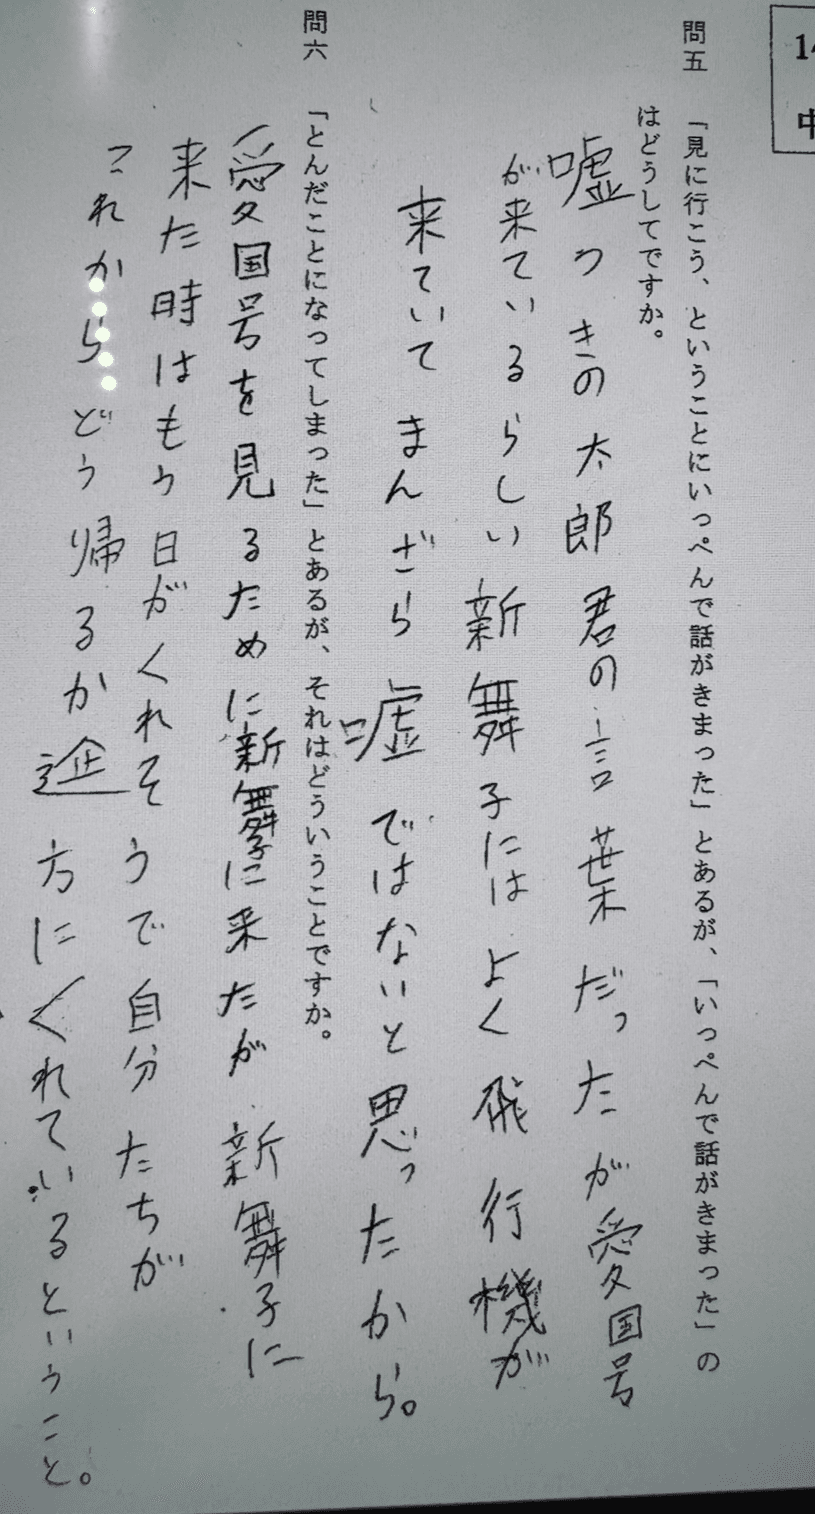 14
中
問五 「見に行こう、ということにいっぺんで話がきまった」とあるが、「いっぺんで話がきまった」の
はどうしてですか。
嘘つきの太郎君の言葉だったが愛国号
が来ているらしい新舞子にはよく飛行機が
来ていてまんざら嘘ではないと思ったから。
問六 「とんだことになってしまった」とあるが、それはどういうことですか。
愛国号を見るために新舞子に来たが新舞子に
来た時はもう日がくれそうで自分たちが
これからどう帰るか途方にくれているということ。